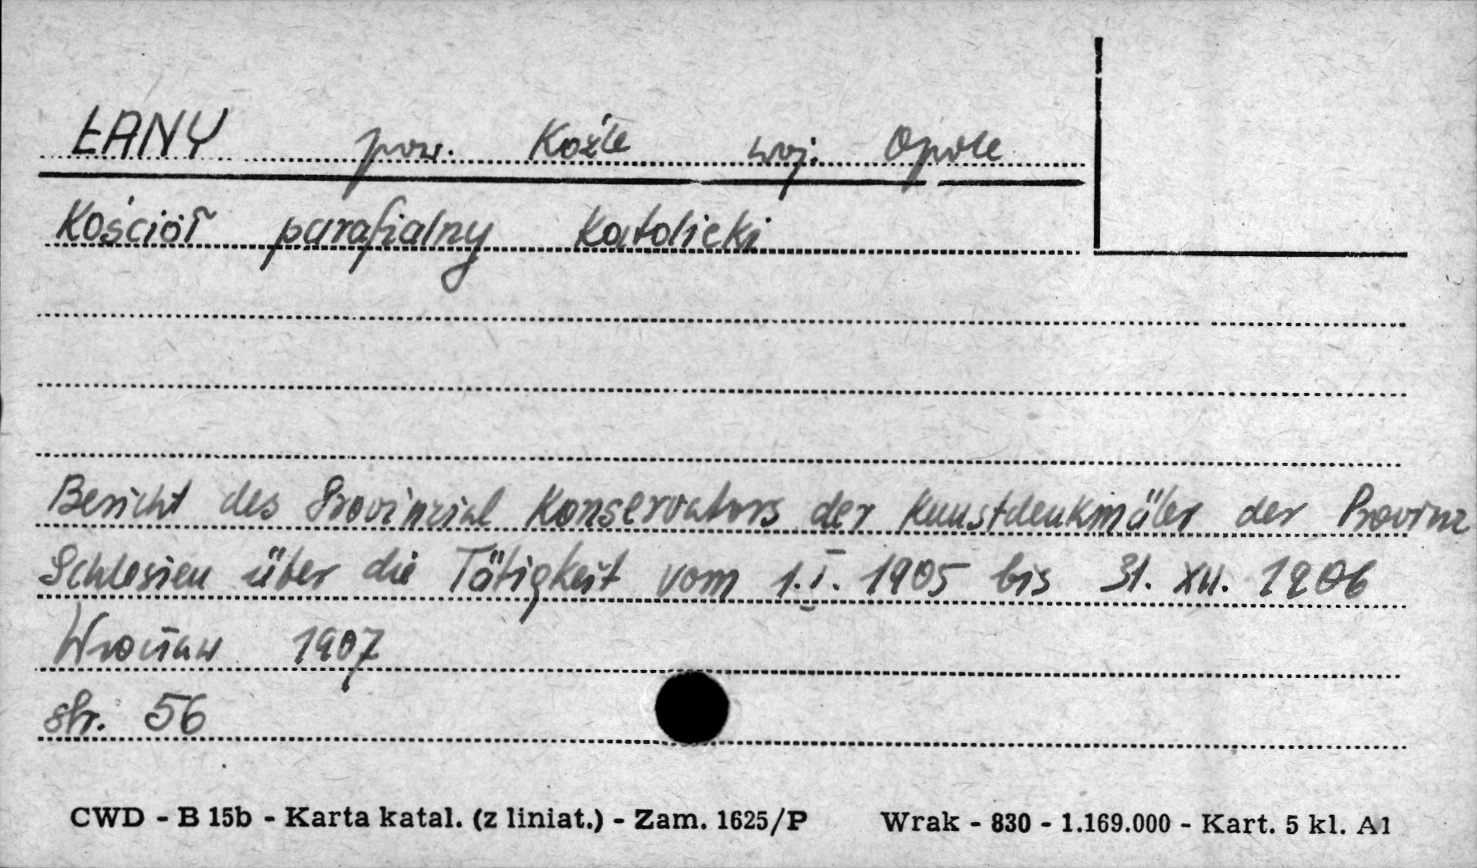 ŁANY pow. Koźle woj. Opole
Kościół parafialny katolicki
Bericht des Provinzial Konservators der Kunstdenkmäler der Provinz
Schlesien über die Tätigkeit vom 1.I. 1905 bis 31. XII. 1906
Wrocław 1907
str. 56
CWD - B 15b - Karta katal. (z liniat.) - Zam. 1625/P Wrak - 830 - 1.169.000 - Kart. 5 kl. A1